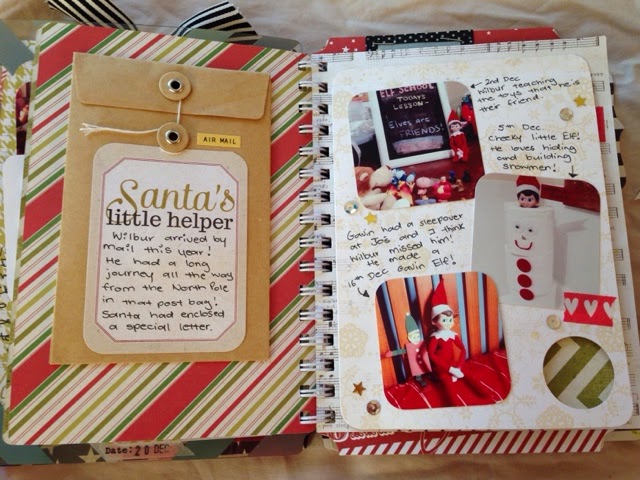 AIR MAIL
Santa's
little helper
Wilbur arrived by
mail this year!
He had a long
journey all the way
from the North Pole
in that post bag!
Santa had enclosed
a special letter.
Date: 20 DEC
ELF SCHOOL
TODAYS
LESSON-
Elves are
FRIENDS!
2nd Dec
Wilbur teaching
the toys that he is
their friend.
5th Dec.
Cheeky little Elf!
He loves hiding
and building
snowmen!
Gavin had a sleepover
at Jo's and I think
Wilbur missed him!
He made
16th Dec Gavin Elf!